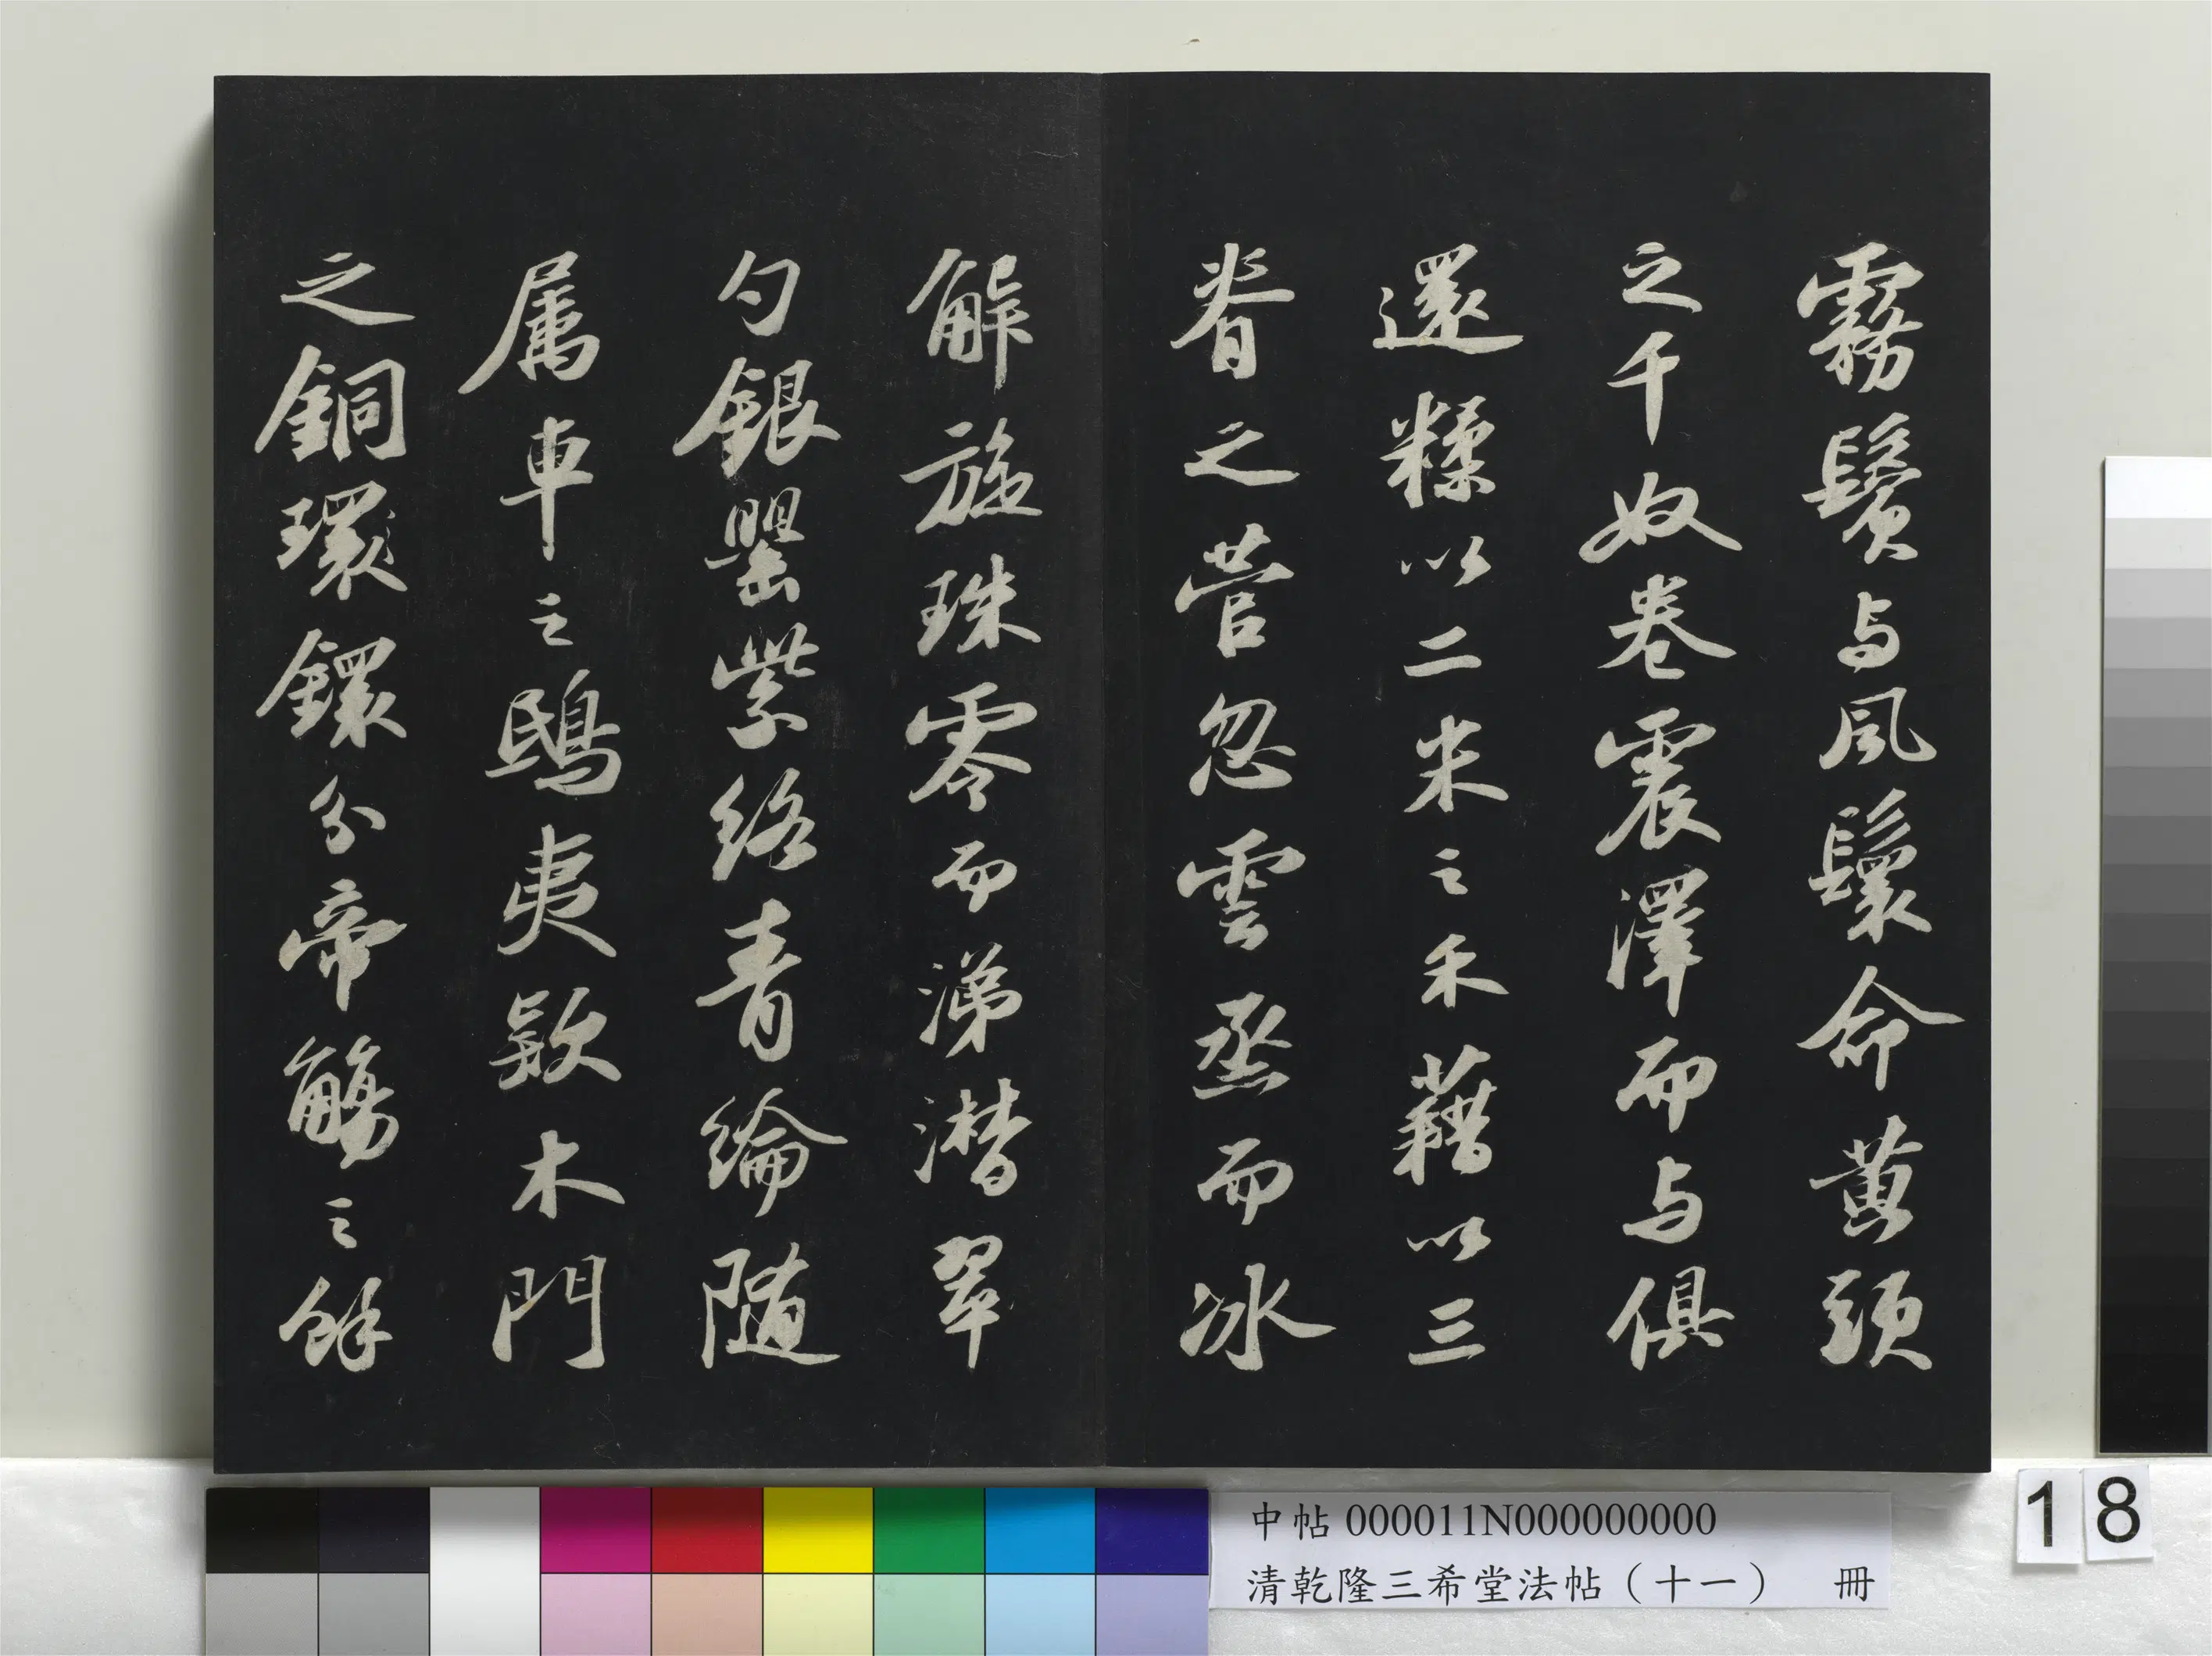 霧鬢与風鬟命黄頭
之千奴卷震澤而与俱
還糅以二米之禾藉以三
脊之菅忽雲烝而冰
解旋珠零而涕潸翠
勺銀罌紫絡青綸随
属車之鴟夷款木門
之銅環鐶分帝觴之餘
中帖 000011N000000000
清乾隆三希堂法帖（十一） 冊
18